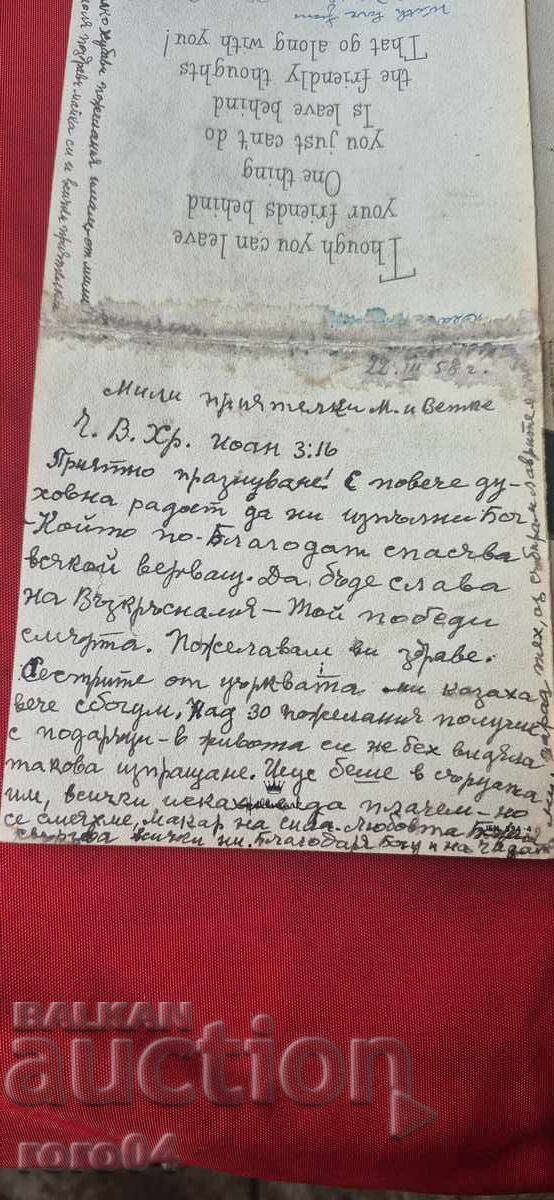 With love from
Though you can leave
your friends behind
One thing
you just can't do
Is leave behind
the friendly thoughts
That go along with you!
22. III 58 г.
Мили приятелки М. и Ветке
Ч. В. Хр. Иоан 3:16
Приятно празнуване! С повече ду-
ховна радост да ни изпълни Бог
-Който по-Благодат спасява
всякой верващ. Да бъде слава
на Възкръсналия - Той победи
смъртта. Пожелавам ви здраве.
Сестрите от църквата ми казаха
вече сбогум. Над 30 пожелания получих
с подаръци - в живота си не бех видяла
такова изпращане. Исус беше в сърцата
им, всички искахме да плачем - но
се смяхме, макар на сила. Любовта Божия
свързва всички ни. Благодаря Богу и на чадат
пожелания имаме от мили
поздрави майка си и всички приятелки
заради тях, аз събирам
BALKAN
auction
roro04